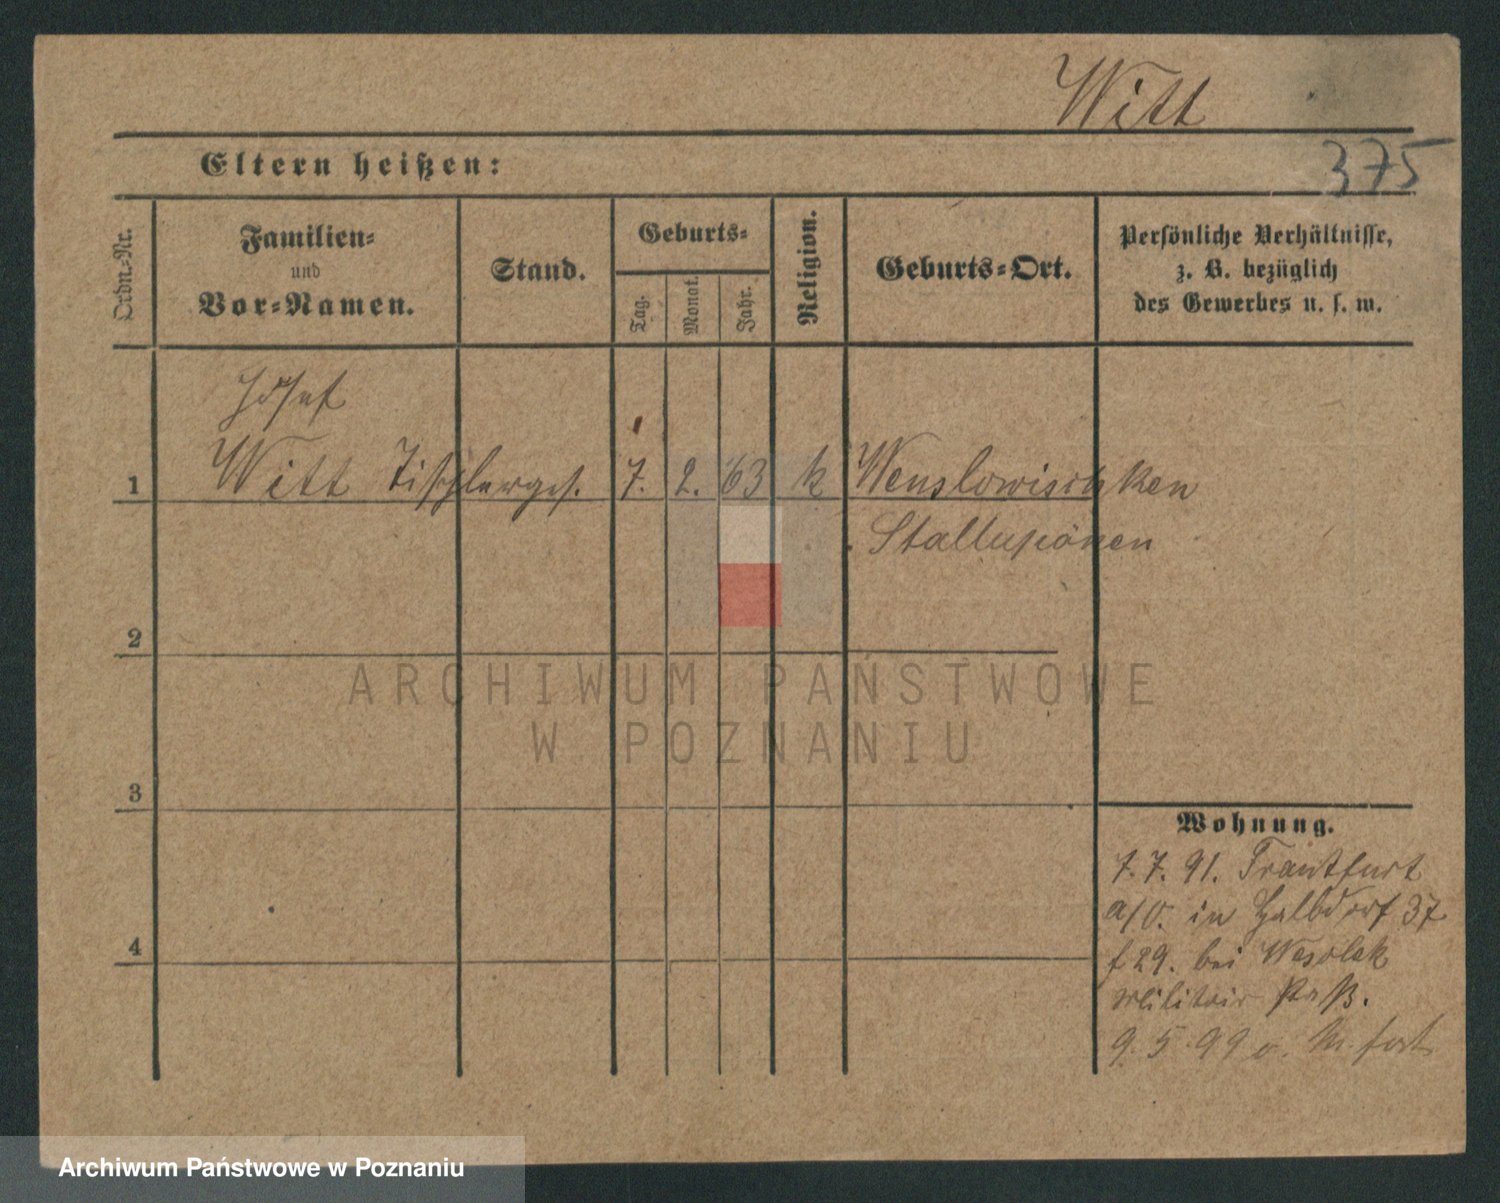 Witt
375
Eltern heißen:
Ordn.-Nr.
Familien- und Vor-Namen.
Stand.
Geburts-
Tag.
Monat.
Jahr.
Religion.
Geburts-Ort.
Persönliche Verhältnisse,
z. B. bezüglich
des Gewerbes u. s. w.
Josef
1 Witt Tischlerges. 7. 2. 63 k Wenslowischken
Stallupönen
2
ARCHIWUM PAŃSTWOWE
W POZNANIU
3
Wohnung.
7. 7. 91. Frankfurt
a/O. in Halbdorf 37
f 29. bei Wesolek
Militair Paß.
4
9. 5. 99 o. M. fort
Archiwum Państwowe w Poznaniu